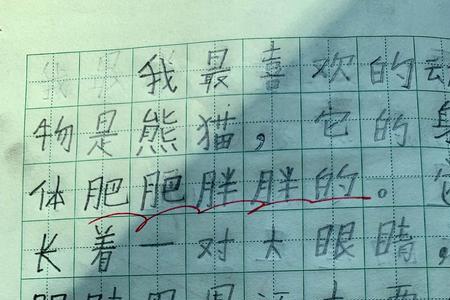 我最喜欢的动
物是熊猫，它的身
体肥肥胖胖的。它
长着一对大眼睛，
眼睛周